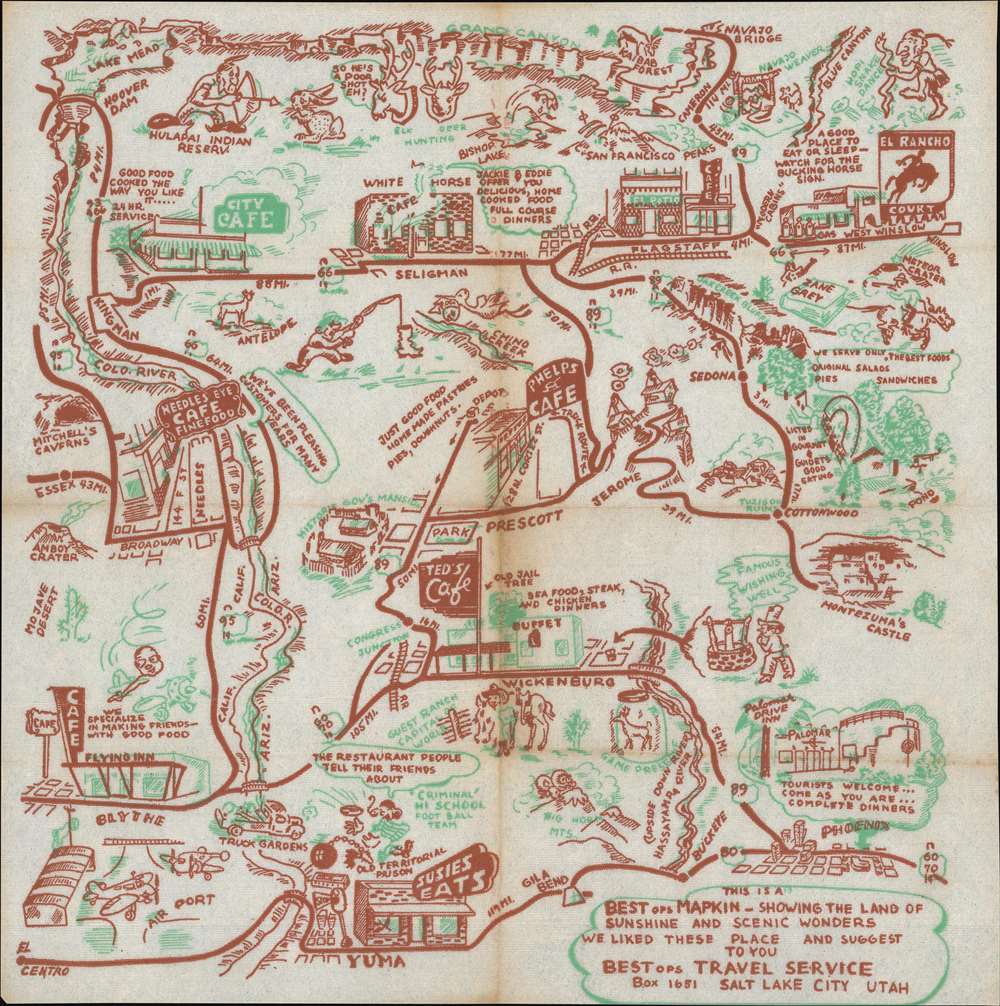 LAKE MEAD
HOOVER DAM
GRAND CANYON
KAIBAB FOREST
NAVAJO BRIDGE
NAVAJO WEAVER
BLUE CANYON
HOPI SNAKE DANCER
SO HE'S
A POOR
SHOT
EH?
HULAPAI INDIAN
RESERV.
ELK DEER
HUNTING
BISHOP LAKE
SAN FRANCISCO PEAKS
CAMERON
111 MI.
43 MI.
89
A GOOD
PLACE TO
EAT OR SLEEP-
WATCH FOR THE
BUCKING HORSE
SIGN.
EL RANCHO
COURT
GAS WEST WINSLOW
WINSLOW
87 MI.
66
GOOD FOOD
COOKED THE
WAY YOU LIKE
IT.....
24 HR.
SERVICE
CITY
CAFE
93
466
WHITE HORSE
CAFE
JACKIE & EDDIE
OFFER YOU
DELICIOUS, HOME
COOKED FOOD
FULL COURSE
DINNERS
EL PATIO
CAFE
FLAGSTAFF
R.R.
4 MI.
77 MI.
66
SELIGMAN
88 MI.
KINGMAN
ANTELOPE
66
64 MI.
COLO. RIVER
95
50 MI.
89
29 MI.
OAK CREEK
ZANE
GREY
METEOR
CRATER
WE SERVE ONLY THE BEST FOODS
ORIGINAL SALADS
PIES SANDWICHES
SEDONA
3 MI.
LISTED
IN GOURMET
& GUIDE TO
GOOD
EATING
POND
TUZIGOOT
RUINS
COTTONWOOD
MONTEZUMA'S
CASTLE
NEEDLES EYE
CAFE
FINE FOOD
WE'VE BEEN PLEASING
CUSTOMERS FOR MANY
MITCHELL'S
CAVERNS
ESSEX 43 MI.
144 F ST
NEEDLES
BROADWAY
AMBOY
CRATER
JUST GOOD FOOD
HOME MADE PASTRIES
PIES, DOUGHNUTS.
DEPOT
PHELPS
CAFE
JEROME
39 MI.
GOV'S MANSION
PARK
PRESCOTT
89
50 MI.
MOJAVE
DESERT
60 MI.
CALIF.
ARIZ.
COLO. R.
95
CALIF.
ARIZ.
TED'S
Cafe
OLD JAIL
TREE
SEA FOOD, STEAK,
AND CHICKEN
DINNERS
BUFFET
FAMOUS
WISHING
WELL
CONGRESS
JUNCTION
16 MI.
RR
WICKENBURG
105 MI.
GUEST RANCH
CAPITOL
WORLD
GAME PRESERVE
54 MI.
89
WE
SPECIALIZE
IN MAKING FRIENDS-
WITH GOOD FOOD
CAFE
CAFE
FLYING INN
BLYTHE
THE RESTAURANT PEOPLE
TELL THEIR FRIENDS
ABOUT
"CRIMINAL"
HI SCHOOL
FOOT BALL
TEAM
TRUCK GARDENS
OLD TERRITORIAL
PRISON
BIG HORN
MTS.
(UPSIDE DOWN)
HASSAYAMPA RIVER
BUCKEYE
Palomar
DRIVE
INN
PALOMAR
TOURISTS WELCOME...
COME AS YOU ARE...
COMPLETE DINNERS
PHOENIX
80
60
70
AIR PORT
EL
CENTRO
SUSIES
EATS
YUMA
119 MI.
GILA
BEND
THIS IS A
BEST OPS MAPKIN - SHOWING THE LAND OF
SUNSHINE AND SCENIC WONDERS
WE LIKED THESE PLACE AND SUGGEST
TO YOU
BEST OPS TRAVEL SERVICE
BOX 1651 SALT LAKE CITY UTAH